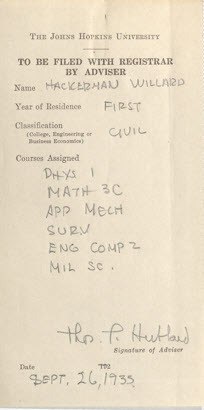 THE JOHNS HOPKINS UNIVERSITY
TO BE FILED WITH REGISTRAR
BY ADVISER
Name HACKERMAN WILLARD
Year of Residence FIRST
Classification
(College, Engineering or
Business Economics) CIVIL
Courses Assigned
PHYS 1
MATH 3C
APP MECH
SURV
ENG COMP 2
MIL SC.
Thos. F. Hubbard
Signature of Adviser
Date 192
SEPT. 26, 1935